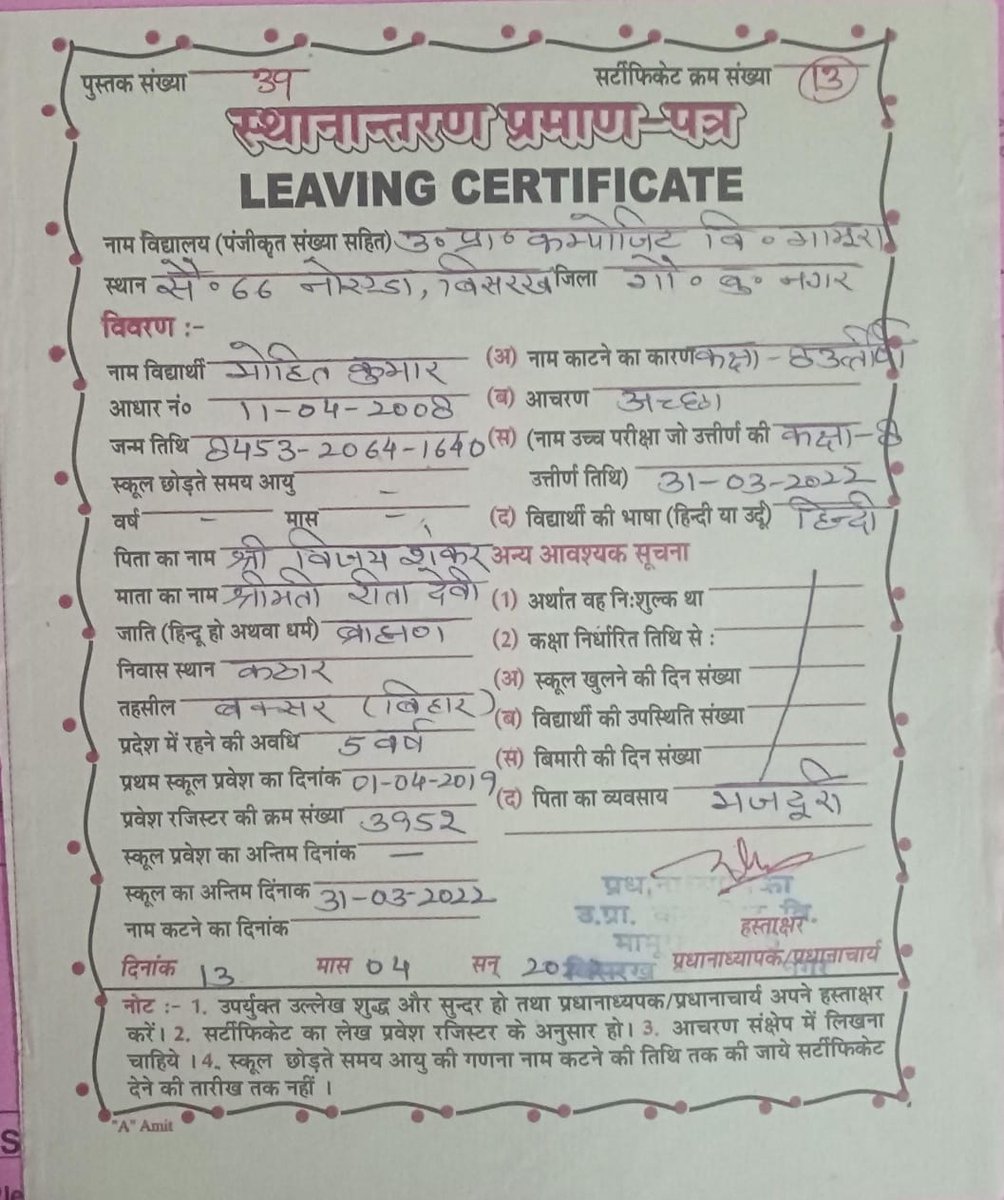 पुस्तक संख्या 39 सर्टीफिकेट क्रम संख्या 13
स्थानान्तरण प्रमाण-पत्र
LEAVING CERTIFICATE
नाम विद्यालय (पंजीकृत संख्या सहित) उ० प्रा० कम्पोजिट वि० मामूरा
स्थान सै० 66 नोएडा, बिसरख जिला गौ० बु० नगर
विवरण :-
नाम विद्यार्थी मोहित कुमार
आधार नं० 11-04-2008
जन्म तिथि 8453-2064-1640
स्कूल छोड़ते समय आयु -
वर्ष - मास -
पिता का नाम श्री विजय शंकर
माता का नाम श्रीमती रीता देवी
जाति (हिन्दू हो अथवा धर्म) ब्राह्मण
निवास स्थान कठार
तहसील बक्सर (बिहार)
प्रदेश में रहने की अवधि 5 वर्ष
प्रथम स्कूल प्रवेश का दिनांक 01-04-2019
प्रवेश रजिस्टर की क्रम संख्या 3952
स्कूल प्रवेश का अन्तिम दिनांक -
स्कूल का अन्तिम दिंनाक 31-03-2022
नाम कटने का दिनांक
(अ) नाम काटने का कारण कक्षा - 8 उत्तीर्ण
(ब) आचरण अच्छा
(स) (नाम उच्च परीक्षा जो उत्तीर्ण की कक्षा-8
उत्तीर्ण तिथि) 31-03-2022
(द) विद्यार्थी की भाषा (हिन्दी या उर्दू) हिन्दी
अन्य आवश्यक सूचना
(1) अर्थात वह निःशुल्क था
(2) कक्षा निर्धारित तिथि से :
(अ) स्कूल खुलने की दिन संख्या
(ब) विद्यार्थी की उपस्थिति संख्या
(स) बिमारी की दिन संख्या
(द) पिता का व्यवसाय मजदूरी
उ.प्रा. वि.
बिसरख
हस्ताक्षर
प्रधानाध्यापक/प्रधानाचार्य
दिनांक 13 मास 04 सन् 20
नोट :- 1. उपर्युक्त उल्लेख शुद्ध और सुन्दर हो तथा प्रधानाध्यपक/प्रधानाचार्य अपने हस्ताक्षर
करें। 2. सर्टीफिकेट का लेख प्रवेश रजिस्टर के अनुसार हो। 3. आचरण संक्षेप में लिखना
चाहिये । 4. स्कूल छोड़ते समय आयु की गणना नाम कटने की तिथि तक की जाये सर्टीफिकेट
देने की तारीख तक नहीं ।
"A" Amit